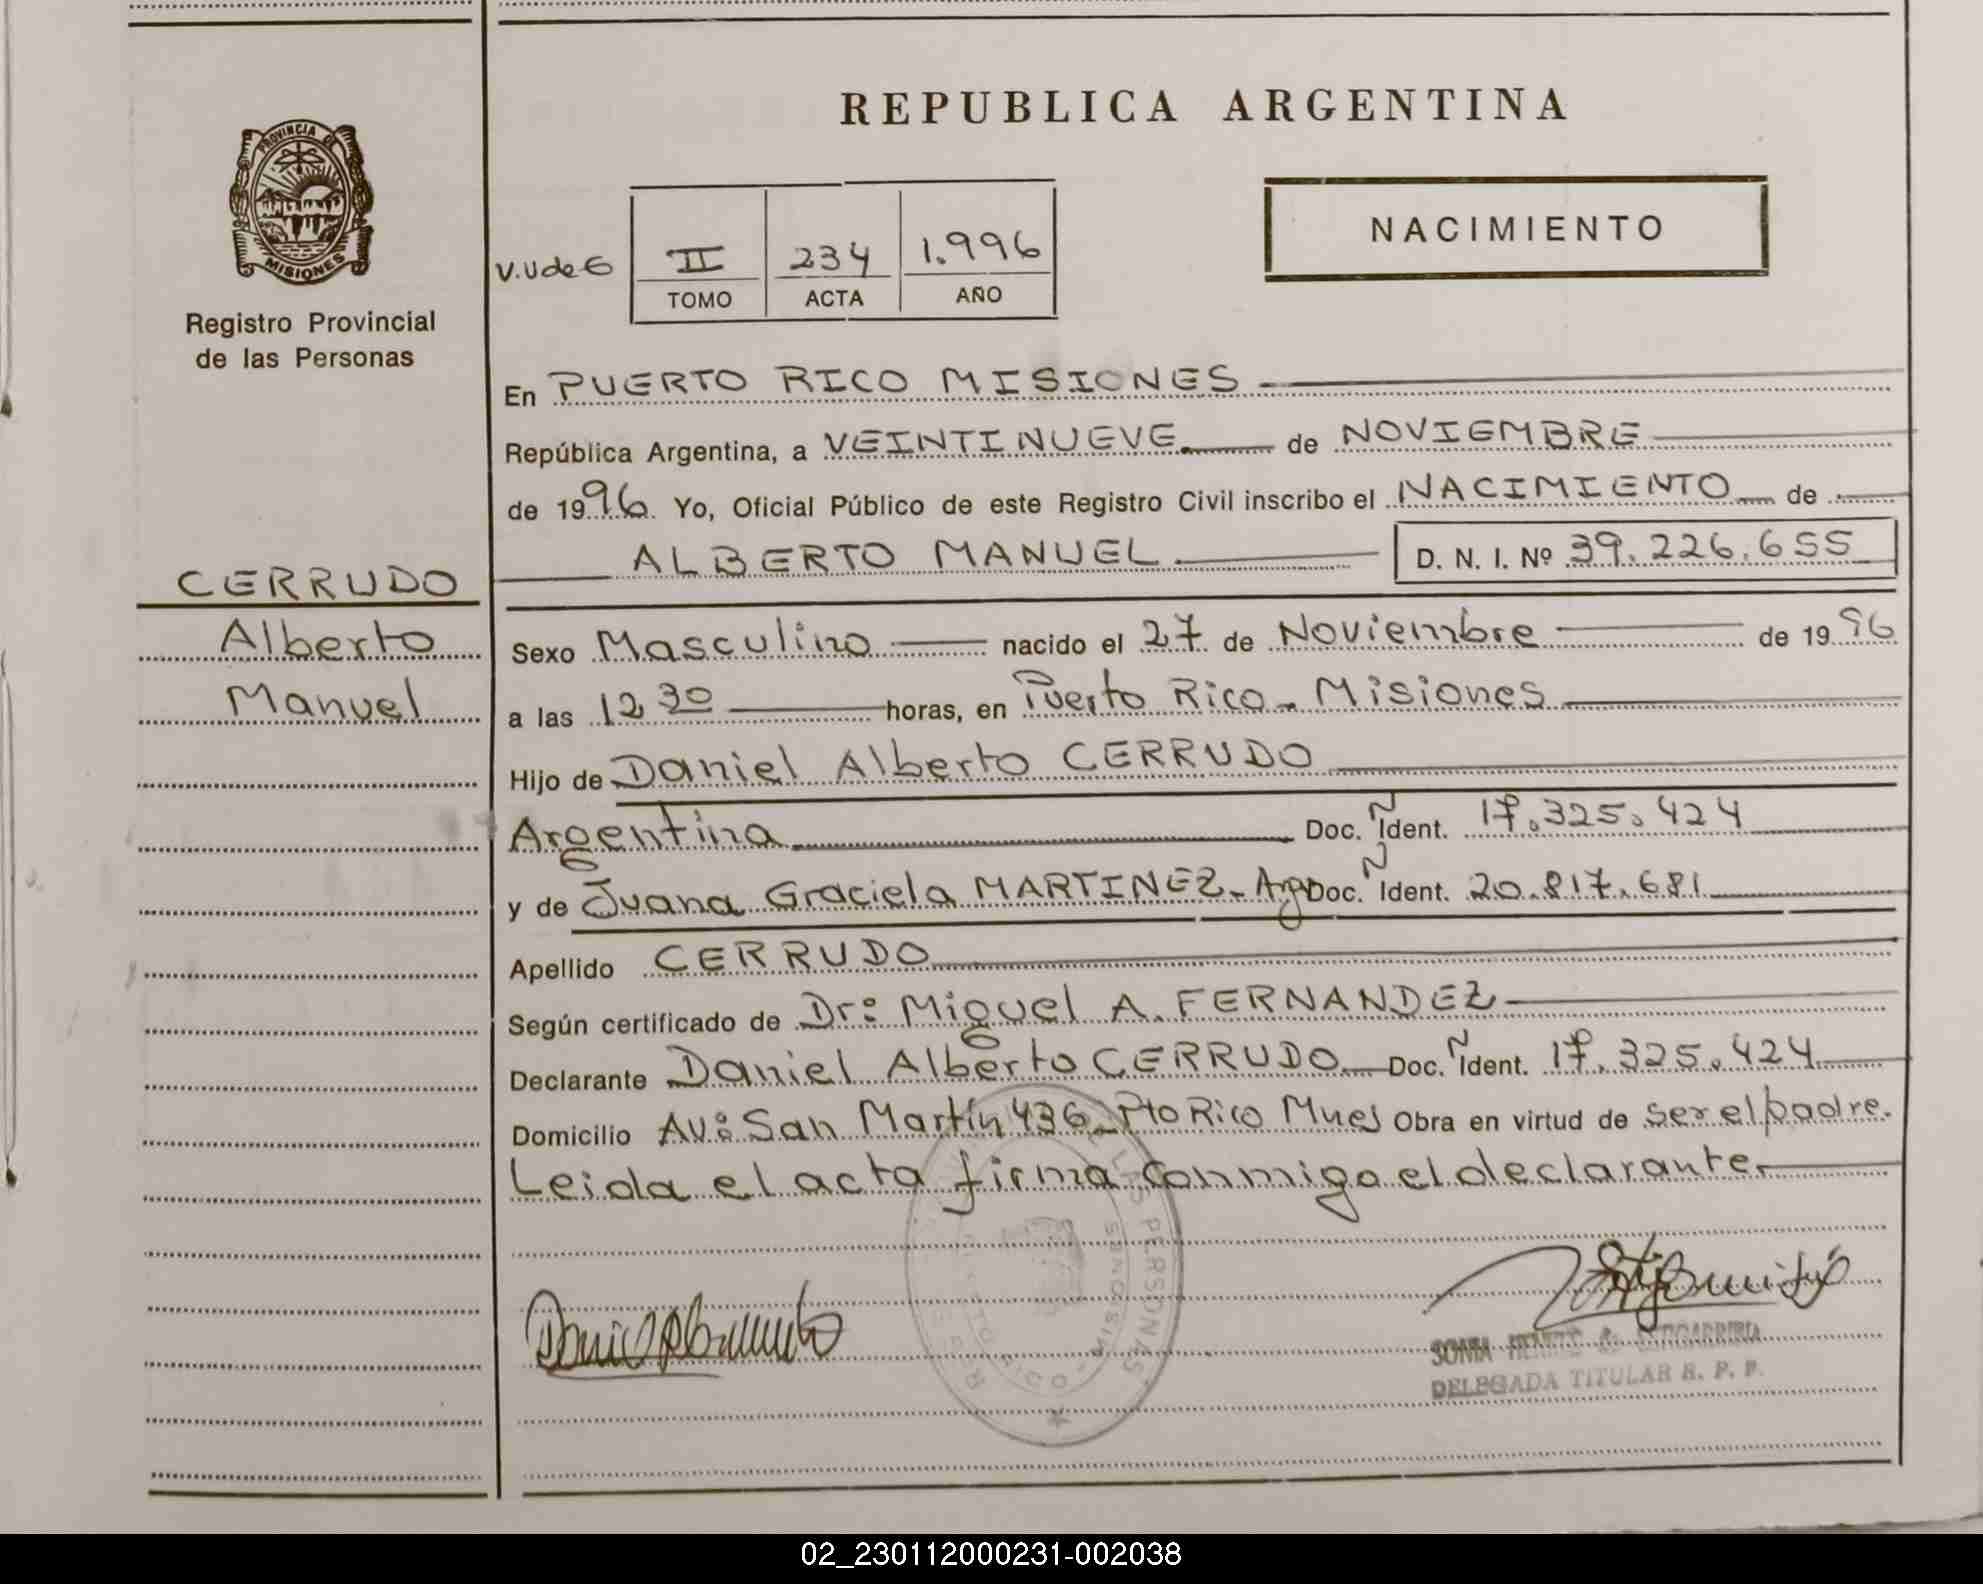 REPUBLICA ARGENTINA
PROVINCIA DE
MISIONES
Registro Provincial
de las Personas
NACIMIENTO
V.U de E
II 234 1.996
TOMO ACTA AÑO
En PUERTO RICO MISIONES
República Argentina, a VEINTINUEVE de NOVIEMBRE
de 1996 Yo, Oficial Público de este Registro Civil inscribo el NACIMIENTO de
ALBERTO MANUEL D. N. I. Nº 39.226.655
CERRUDO
Alberto
Manuel
Sexo Masculino nacido el 27 de Noviembre de 1996
a las 12 30 horas, en Puerto Rico - Misiones
Hijo de Daniel Alberto CERRUDO
Argentina Doc. Ident. 17.325.424
y de Juana Graciela MARTINEZ - Arg Doc. Ident. 20.817.681
Apellido CERRUDO
Según certificado de Dr: Miguel A. FERNANDEZ
Declarante Daniel Alberto CERRUDO Doc. Ident. 17.325.424
Domicilio Av: San Martín 436 - Pto Rico Mnes Obra en virtud de ser el padre.
Leida el acta firma conmigo el declarante.
LAS PERSONAS
MISIONES
SONIA
DELEGADA TITULAR R. P. P.
02_230112000231-002038